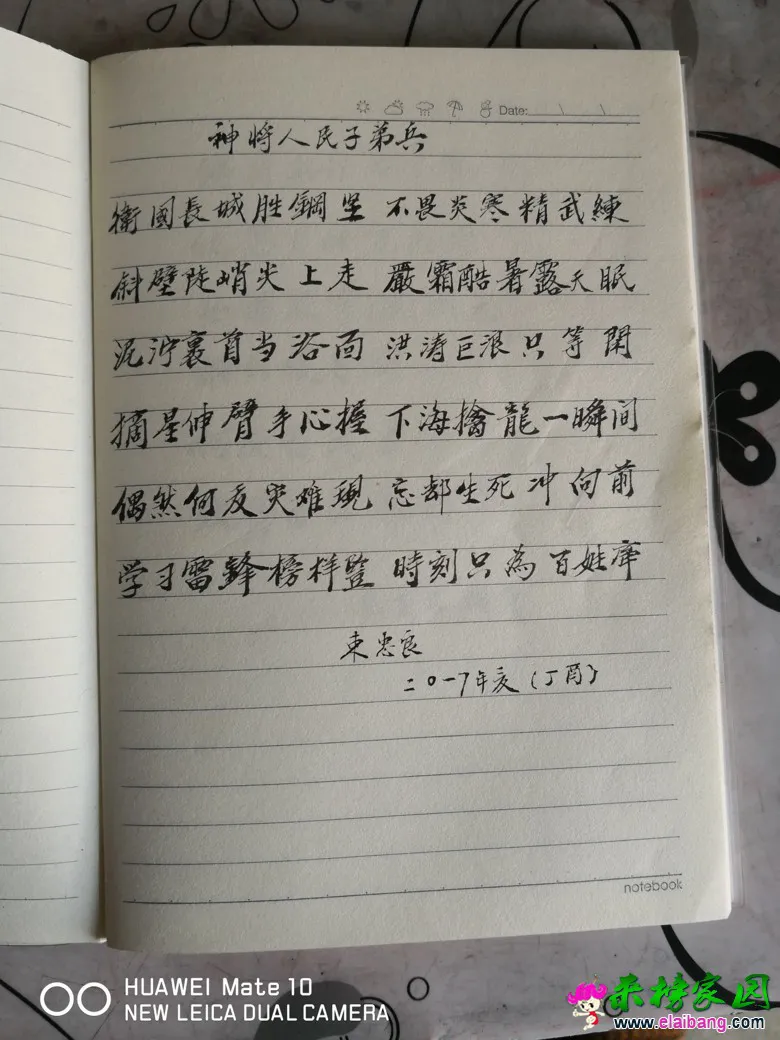 Date:
神將人民子弟兵
衛國長城胜鋼堅 不畏炎寒精武練
斜壁陡峭尖上走 嚴霜酷暑露天眠
泥泞裏首当浴面 洪涛巨浪只等閑
摘星伸臂手心握 下海擒龍一瞬间
偶然何处灾难現 忘却生死冲向前
学习雷鋒榜样豎 時刻只為百姓
忠良
二〇一7年亥(丁酉)
notebook
HUAWEI Mate 10
NEW LEICA DUAL CAMERA
来榜家园
www.elaibang.com